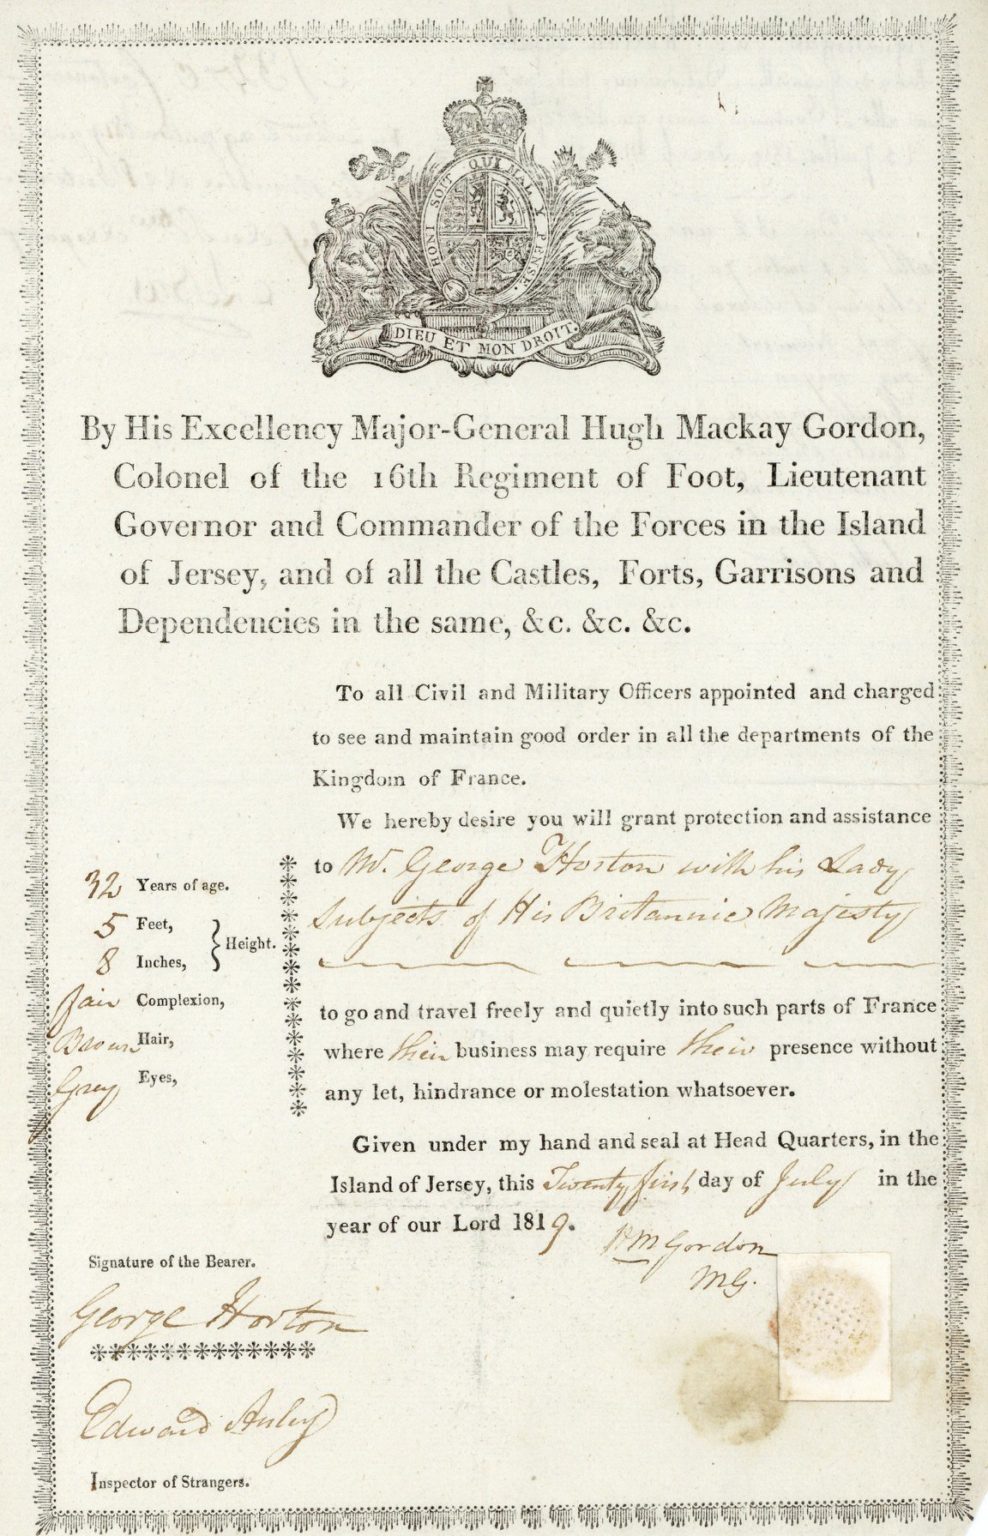 HONI SOIT QUI MAL Y PENSE
DIEU ET MON DROIT.
By His Excellency Major-General Hugh Mackay Gordon,
Colonel of the 16th Regiment of Foot, Lieutenant
Governor and Commander of the Forces in the Island
of Jersey, and of all the Castles, Forts, Garrisons and
Dependencies in the same, &c. &c. &c.
To all Civil and Military Officers appointed and charged
to see and maintain good order in all the departments of the
Kingdom of France.
We hereby desire you will grant protection and assistance
to Mr. George Horton with his Lady
Subjects of His Britannic Majesty
to go and travel freely and quietly into such parts of France
where their business may require their presence without
any let, hindrance or molestation whatsoever.
Given under my hand and seal at Head Quarters, in the
Island of Jersey, this Twenty first day of July in the
year of our Lord 1819.
Gordon
MG.
32 Years of age.
5 Feet,
Height.
8 Inches,
fair Complexion,
Brown Hair,
Grey Eyes,
Signature of the Bearer.
George Horton
Edward
Inspector of Strangers.